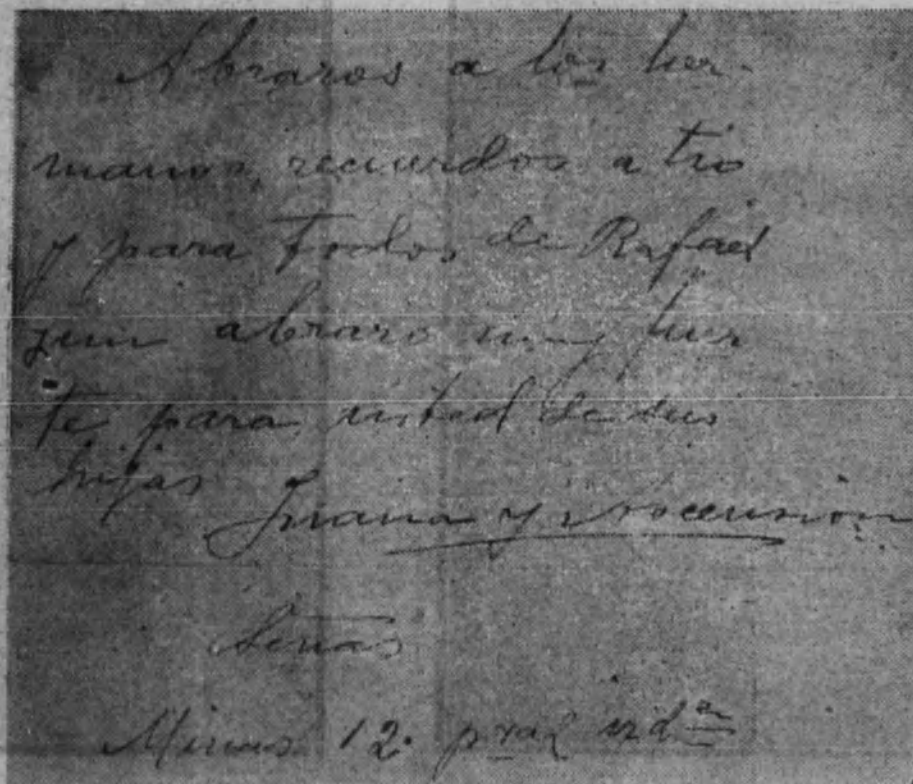 Abrazos a los her-
manos, recuerdos a tio
y para todos de Rafael
y un abrazo muy fuer
te para usted de sus
hijas
Juana y Ascensión
Señas
Minas 12. pral izda